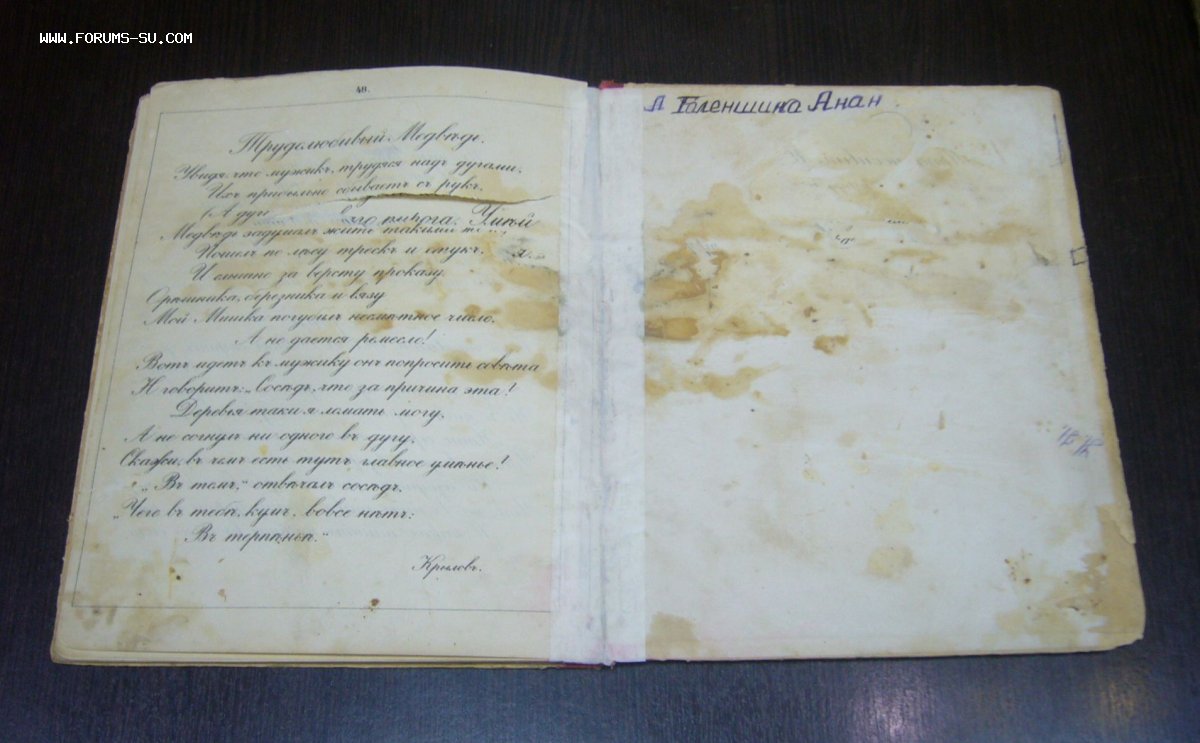 WWW.FORUMS-SU.COM
48.
Трудолюбивый Медвѣдь.
Увидя, что мужикъ, трудяся надъ дугами,
Ихъ прибыльно сбываетъ съ рукъ,
(А дуги
Медвѣдь задумалъ жить такими
Пошелъ по лѣсу трескъ и стукъ,
И слышно за версту проказу.
Орѣшника, березника и вязу
Мой Мишка погубилъ несмѣтное число,
А не дается ремесло!
Вотъ идетъ къ мужику онъ попросить совѣта
И говоритъ: „Сосѣдъ, что за причина эта!
Деревья таки я ломать могу,
А не согнулъ ни одного въ дугу,
Скажи, въ чемъ есть тутъ главное умѣнье!
„Въ томъ,“ отвѣчалъ сосѣдъ,
„Чего въ тебѣ, кумъ, вовсе нѣтъ:
Въ терпѣньи.“
Крыловъ.
Анан